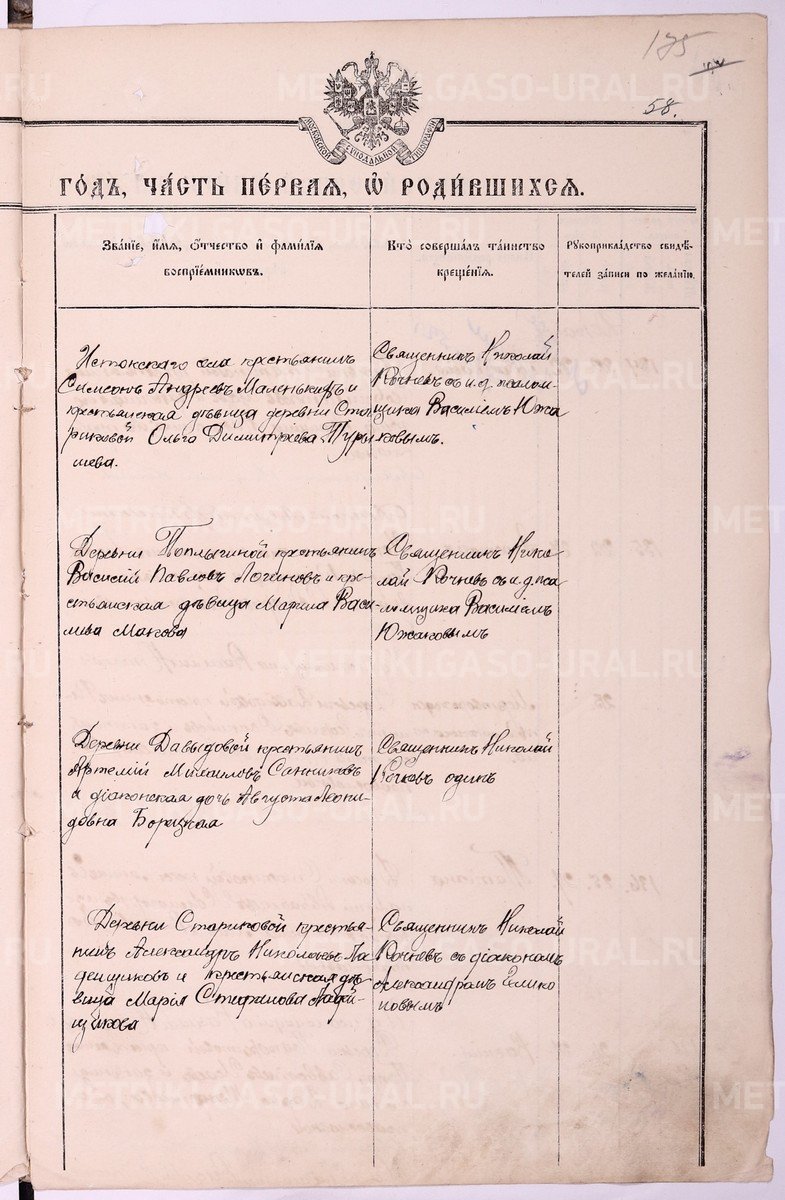 175
58.
МОСКОВСКОЙ СѴНОДАЛЬНОЙ ТИПОГРАФІИ
ГО́ДЪ, ЧА́СТЬ ПЕ́РВАЯ, Ѽ РОДИ́ВШИХСЯ.
Зва́нїе, и҆́мя, ѻ҆́тчество и҆ фами́лїя
воспрїе́мникѡвъ.
Кто̀ соверша́лъ та́инство
креще́нїя.
Рꙋкоприкла́дство свидѣ́-
телей за́писи по жела́нїю.
Истокскаго села крестьянинъ
Симеонъ Андреевъ Маленькихъ и
крестьянская дѣвица деревни Ста
риковой Ольга Димитріева Туры
шева.
Священникъ Николай
Кочневъ съ и. д. псалом-
щика Василіемъ Южа
ковымъ.
Деревни Топлыгиной крестьянинъ
Василий Павловъ Логиновъ и кре-
стьянская дѣвица Марія Васи
лиева Макова
Священникъ Нико
лай Кочневъ съ и. д. пса
ломщика Василіемъ
Южаковымъ
Деревни Давыдовой крестьянинъ
Артемій Михаиловъ Санниковъ
и діаконская дочь Августа Леони-
довна Борецкая
Священникъ Николай
Кочневъ одинъ
Деревни Стариковой крестья-
нинъ Александръ Николаевъ Ла
дейщиковъ и крестьянская дѣ-
вица Марія Стефанова Ладей-
щикова
Священникъ Николай
Кочневъ съ діакономъ
Александромъ Гелико
новымъ
METRIKI.GASO-URAL.RU